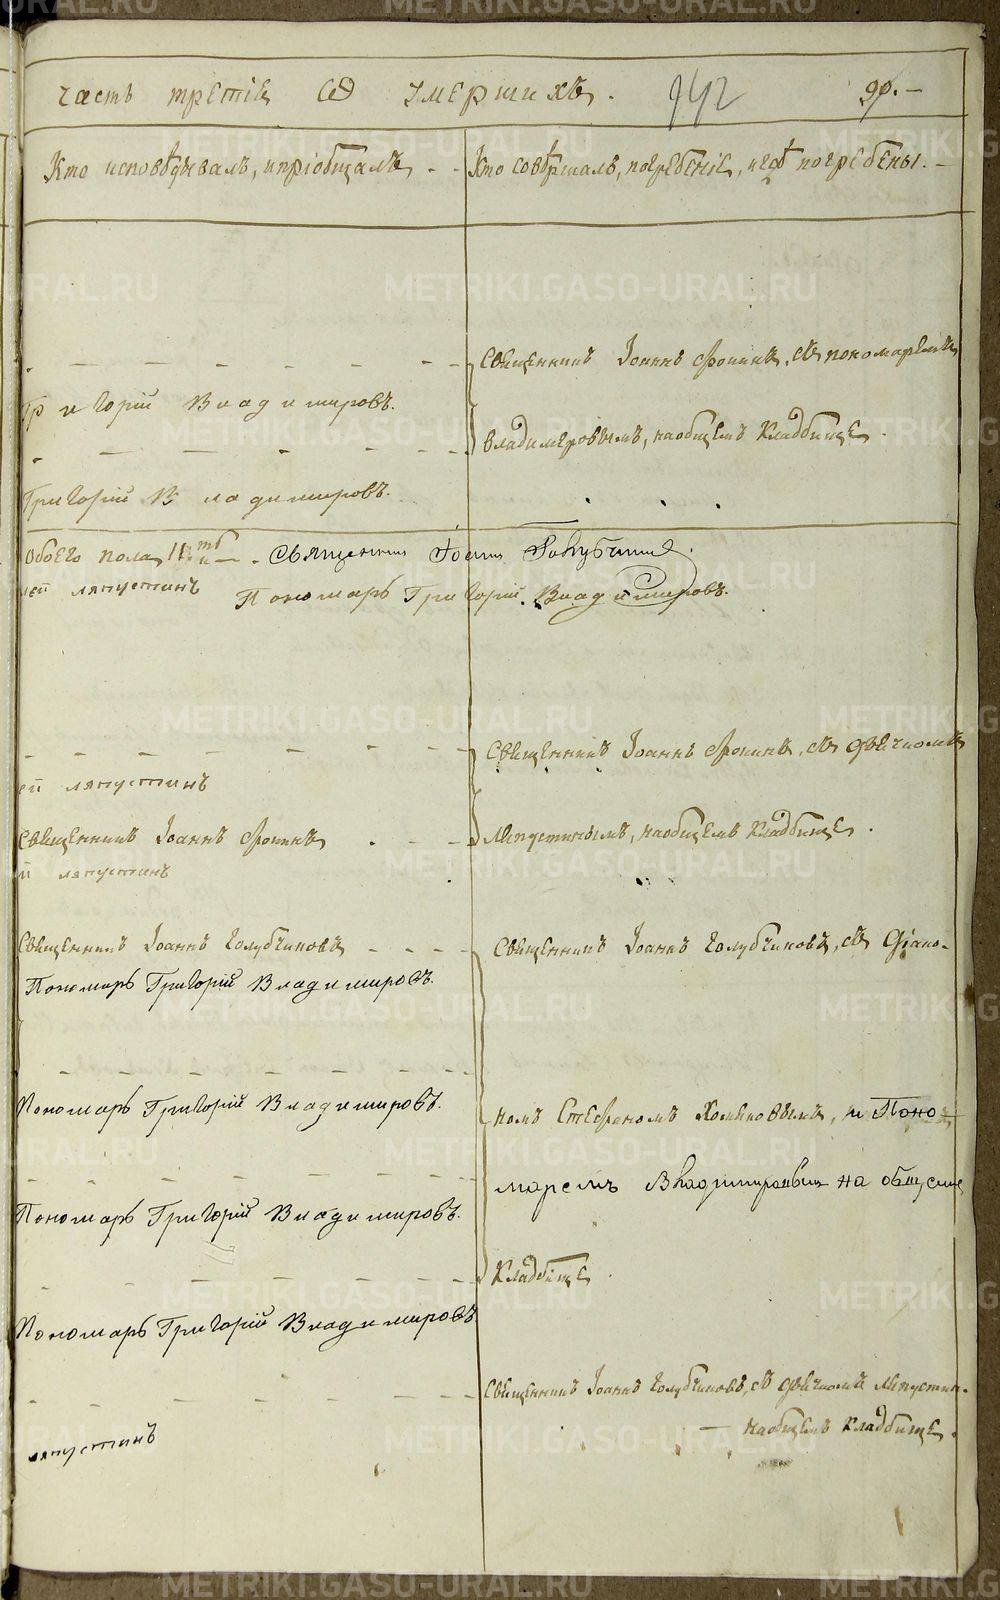 часть третія о умершихъ. 942 90.-
Кто исповѣдывалъ, и пріобщалъ
Кто совершалъ, погребеніе, и гдѣ погребены.
Священникъ Іоаннъ Ѳоминъ, съ пономаремъ
Григорій Владимировъ.
Владимеровымъ, на общемъ кладбище.
Григорій Владимировъ.
Обоего пола 11ть. Священникъ Іоаннъ Голубчиковъ.
ляпустинъ Пономарь Григорій Владимировъ.
Священникъ Іоаннъ Ѳоминъ, съ дьячкомъ
ей ляпустинъ
Священникъ Іоаннъ Ѳоминъ
Ляпустинымъ, на общемъ кладбище.
й ляпустинъ
Священникъ Іоаннъ Голубчиковъ
Священникъ Іоаннъ Голубчиковъ, съ діако-
Пономарь Григорій Владимировъ.
Пономарь Григорій Владимировъ.
номъ Стефаномъ Хомяковымъ, и Поно
маремъ Владимировым на общеме
Пономарь Григорій Владимировъ.
кладбище
Пономарь Григорій Владимировъ
Священникъ Іоаннъ Голубчиковъ, съ дьячкомъ Ляпустин.
на общемъ кладбище.
ляпустинъ
METRIKI.GASO-URAL.RU